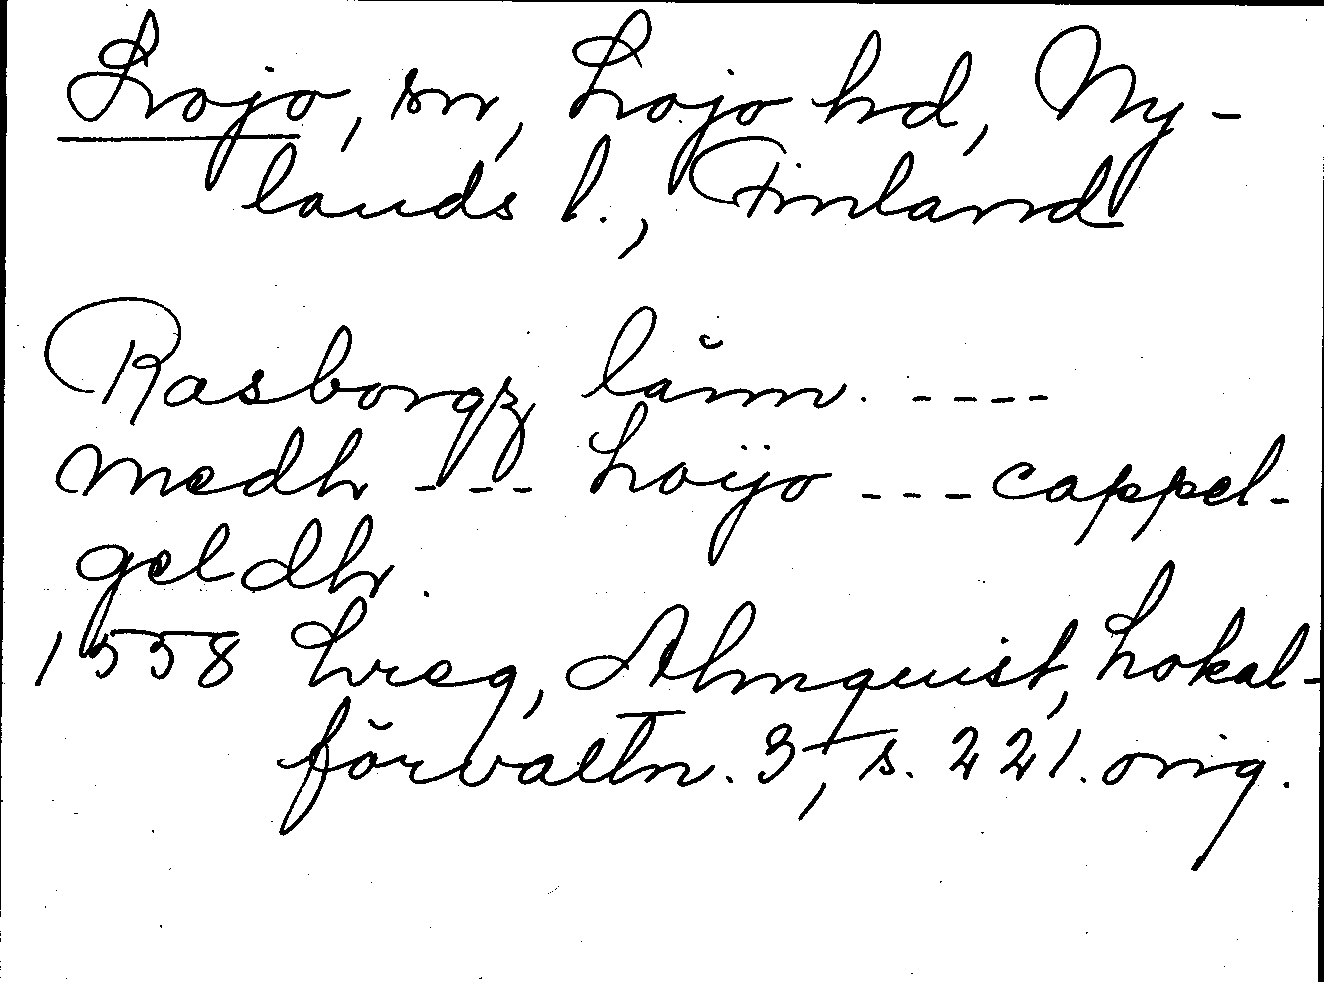 Lojo, sn, Lojo hd, Ny-
lands l., Finland
Rasborgz länn. ----
medh --- Loÿo --- cappel-
geldh.
1558 Lreg, Almquist, Lokal-
förvaltn. 3, s. 221. orig.